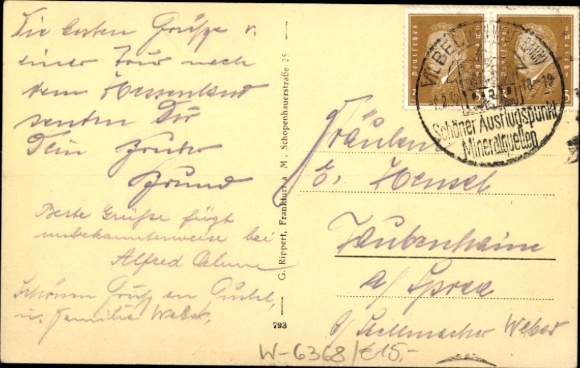 Die besten Grüße v.
einer Tour nach
dem Hessenland
senden Dir
Dein
Freund
Beste Grüße fügt
unbekannterweise bei
Alfred
Schönen Gruß an Gustel,
u. Familie Weber,
G. Rippert, Frankfurt a. M., Schopenhauerstraße 25
793
VILBEL
18-19
Schöner Ausflugspunkt
Mineralquellen
Fräulein
E. Hensel
Taubenheim
a/ Spree
b/ Stellmacher Weber
W-6368/€15,-